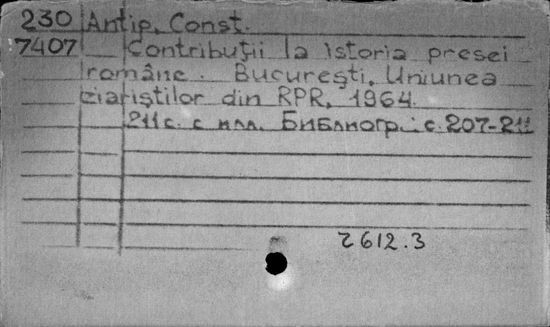 230 Antip, Const.
7407 Contribuții la istoria presei
române. București, Uniunea
ziariștilor din RPR, 1964.
211 с. с илл. Библиогр.: с. 207-211
2612.3